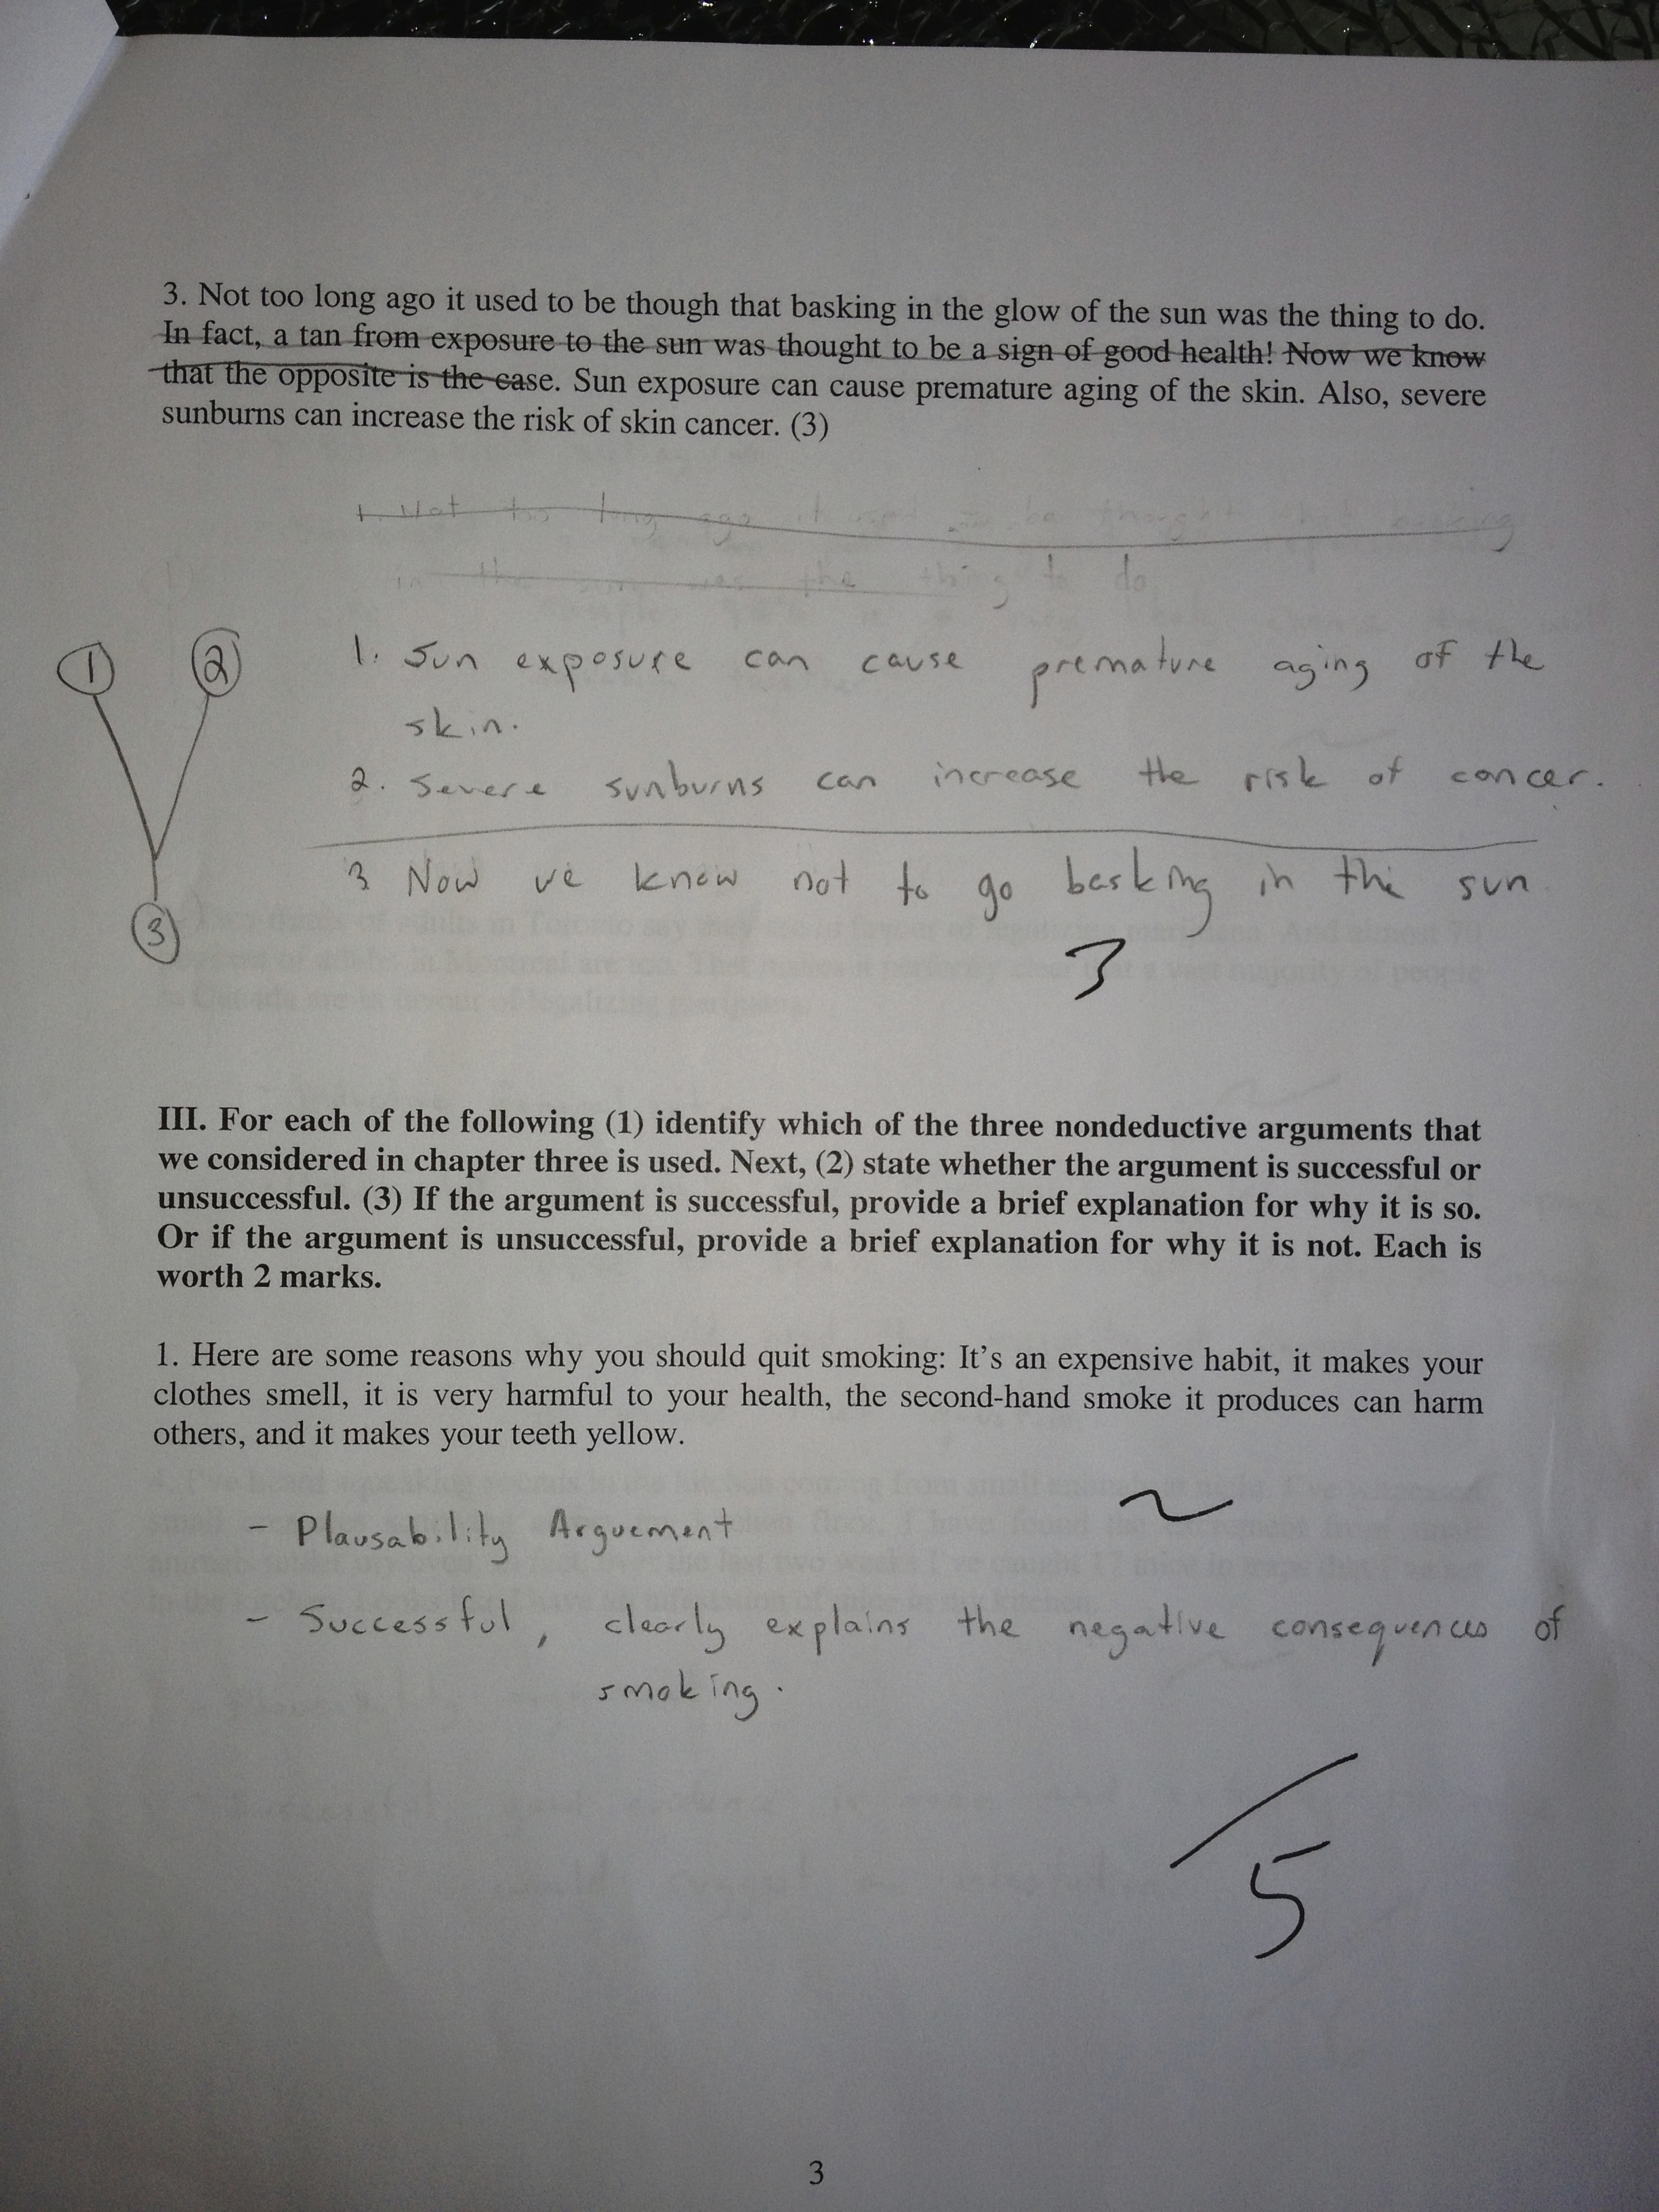 3. Not too long ago it used to be though that basking in the glow of the sun was the thing to do.
In fact, a tan from exposure to the sun was thought to be a sign of good health! Now we know
that the opposite is the case. Sun exposure can cause premature aging of the skin. Also, severe
sunburns can increase the risk of skin cancer. (3)
1. Not too long ago it used to be thought that basking
in the sun was the thing to do
1 2
1. Sun exposure can cause premature aging of the
skin.
2. Severe sunburns can increase the risk of cancer.
3 Now we know not to go basking in the sun
3
3
III. For each of the following (1) identify which of the three nondeductive arguments that
we considered in chapter three is used. Next, (2) state whether the argument is successful or
unsuccessful. (3) If the argument is successful, provide a brief explanation for why it is so.
Or if the argument is unsuccessful, provide a brief explanation for why it is not. Each is
worth 2 marks.
1. Here are some reasons why you should quit smoking: It's an expensive habit, it makes your
clothes smell, it is very harmful to your health, the second-hand smoke it produces can harm
others, and it makes your teeth yellow.
- Plausability Arguement
- Successful, clearly explains the negative consequences of
smoking.
/5
3